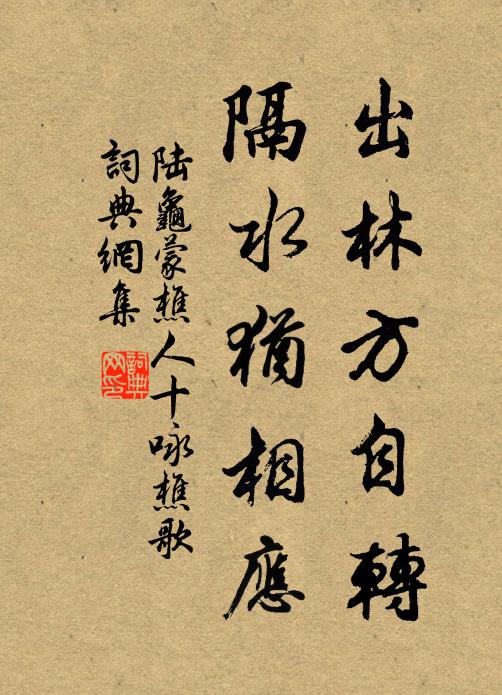 出林方自轉
隔水猶相應
陆龜蒙樵人十咏樵歌
詞典網集
詞典
网印